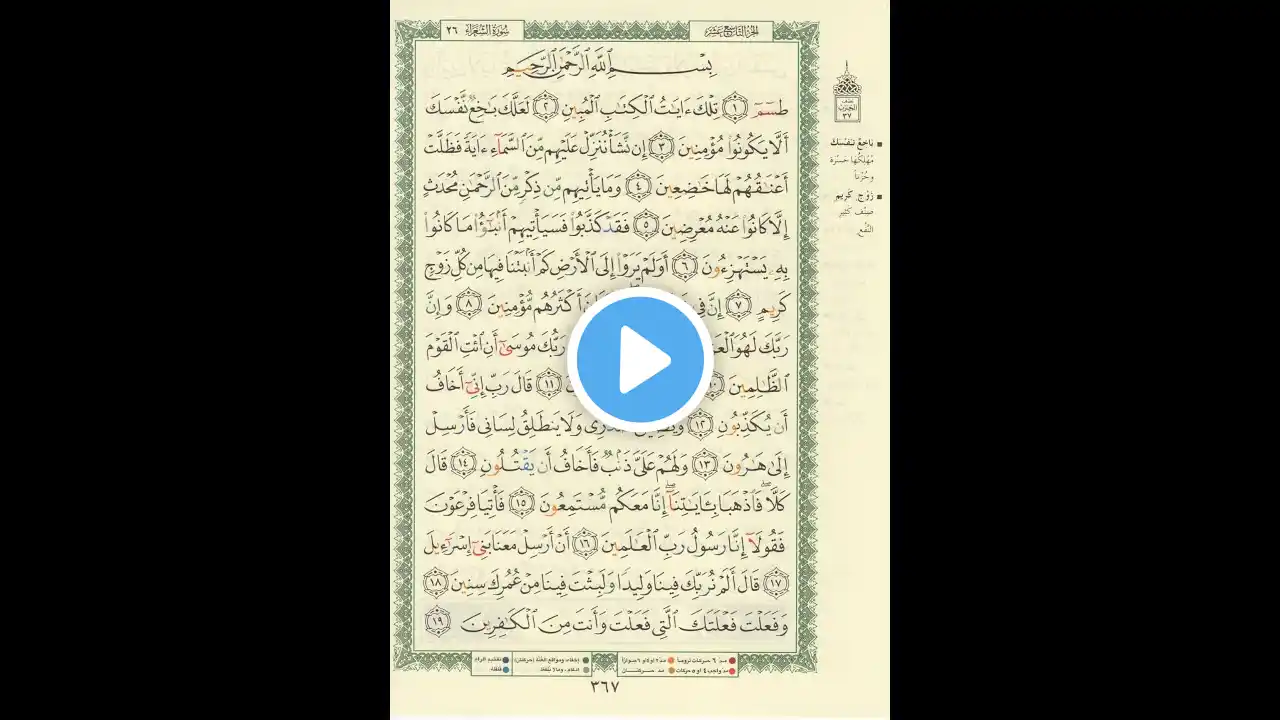 سُورَةُ الشُّعَرَاءِ ٢٦
الجزء التاسع عشر
بِسْمِ ٱللَّهِ ٱلرَّحْمَٰنِ ٱلرَّحِيمِ
طسٓمٓ ١ تِلْكَ ءَايَٰتُ ٱلْكِتَٰبِ ٱلْمُبِينِ ٢ لَعَلَّكَ بَٰخِعٌ نَّفْسَكَ
أَلَّا يَكُونُوا۟ مُؤْمِنِينَ ٣ إِن نَّشَأْ نُنَزِّلْ عَلَيْهِم مِّنَ ٱلسَّمَآءِ ءَايَةً فَظَلَّتْ
أَعْنَٰقُهُمْ لَهَا خَٰضِعِينَ ٤ وَمَا يَأْتِيهِم مِّن ذِكْرٍ مِّنَ ٱلرَّحْمَٰنِ مُحْدَثٍ
إِلَّا كَانُوا۟ عَنْهُ مُعْرِضِينَ ٥ فَقَدْ كَذَّبُوا۟ فَسَيَأْتِيهِمْ أَنۢبَٰٓؤُا۟ مَا كَانُوا۟
بِهِۦ يَسْتَهْزِءُونَ ٦ أَوَلَمْ يَرَوْا۟ إِلَى ٱلْأَرْضِ كَمْ أَنۢبَتْنَا فِيهَا مِن كُلِّ زَوْجٍ
كَرِيمٍ ٧ إِنَّ فِي أَكْثَرُهُم مُّؤْمِنِينَ ٨ وَإِنَّ
رَبَّكَ لَهُوَ رَبُّكَ مُوسَىٰٓ أَنِ ٱئْتِ ٱلْقَوْمَ
ٱلظَّٰلِمِينَ ١٠ ١١ قَالَ رَبِّ إِنِّىٓ أَخَافُ
أَن يُكَذِّبُونِ ١٢ وَلَا يَنطَلِقُ لِسَانِى فَأَرْسِلْ
إِلَىٰ هَٰرُونَ ١٣ وَلَهُمْ عَلَىَّ ذَنۢبٌ فَأَخَافُ أَن يَقْتُلُونِ ١٤ قَالَ
كَلَّا فَٱذْهَبَا بِـَٔايَٰتِنَآ إِنَّا مَعَكُم مُّسْتَمِعُونَ ١٥ فَأْتِيَا فِرْعَوْنَ
فَقُولَآ إِنَّا رَسُولُ رَبِّ ٱلْعَٰلَمِينَ ١٦ أَنْ أَرْسِلْ مَعَنَا بَنِىٓ إِسْرَٰٓءِيلَ
١٧ قَالَ أَلَمْ نُرَبِّكَ فِينَا وَلِيدًا وَلَبِثْتَ فِينَا مِنْ عُمُرِكَ سِنِينَ ١٨
وَفَعَلْتَ فَعْلَتَكَ ٱلَّتِى فَعَلْتَ وَأَنتَ مِنَ ٱلْكَٰفِرِينَ ١٩
نصف
الحزب
٣٧
بَاخِعٌ نَفْسَكَ
مُهْلِكُهَا حَسْرَة
وحُزْناً
زَوْجٍ كَرِيم
صِنْفٍ كَثِير
النَّفْع
٣٦٧